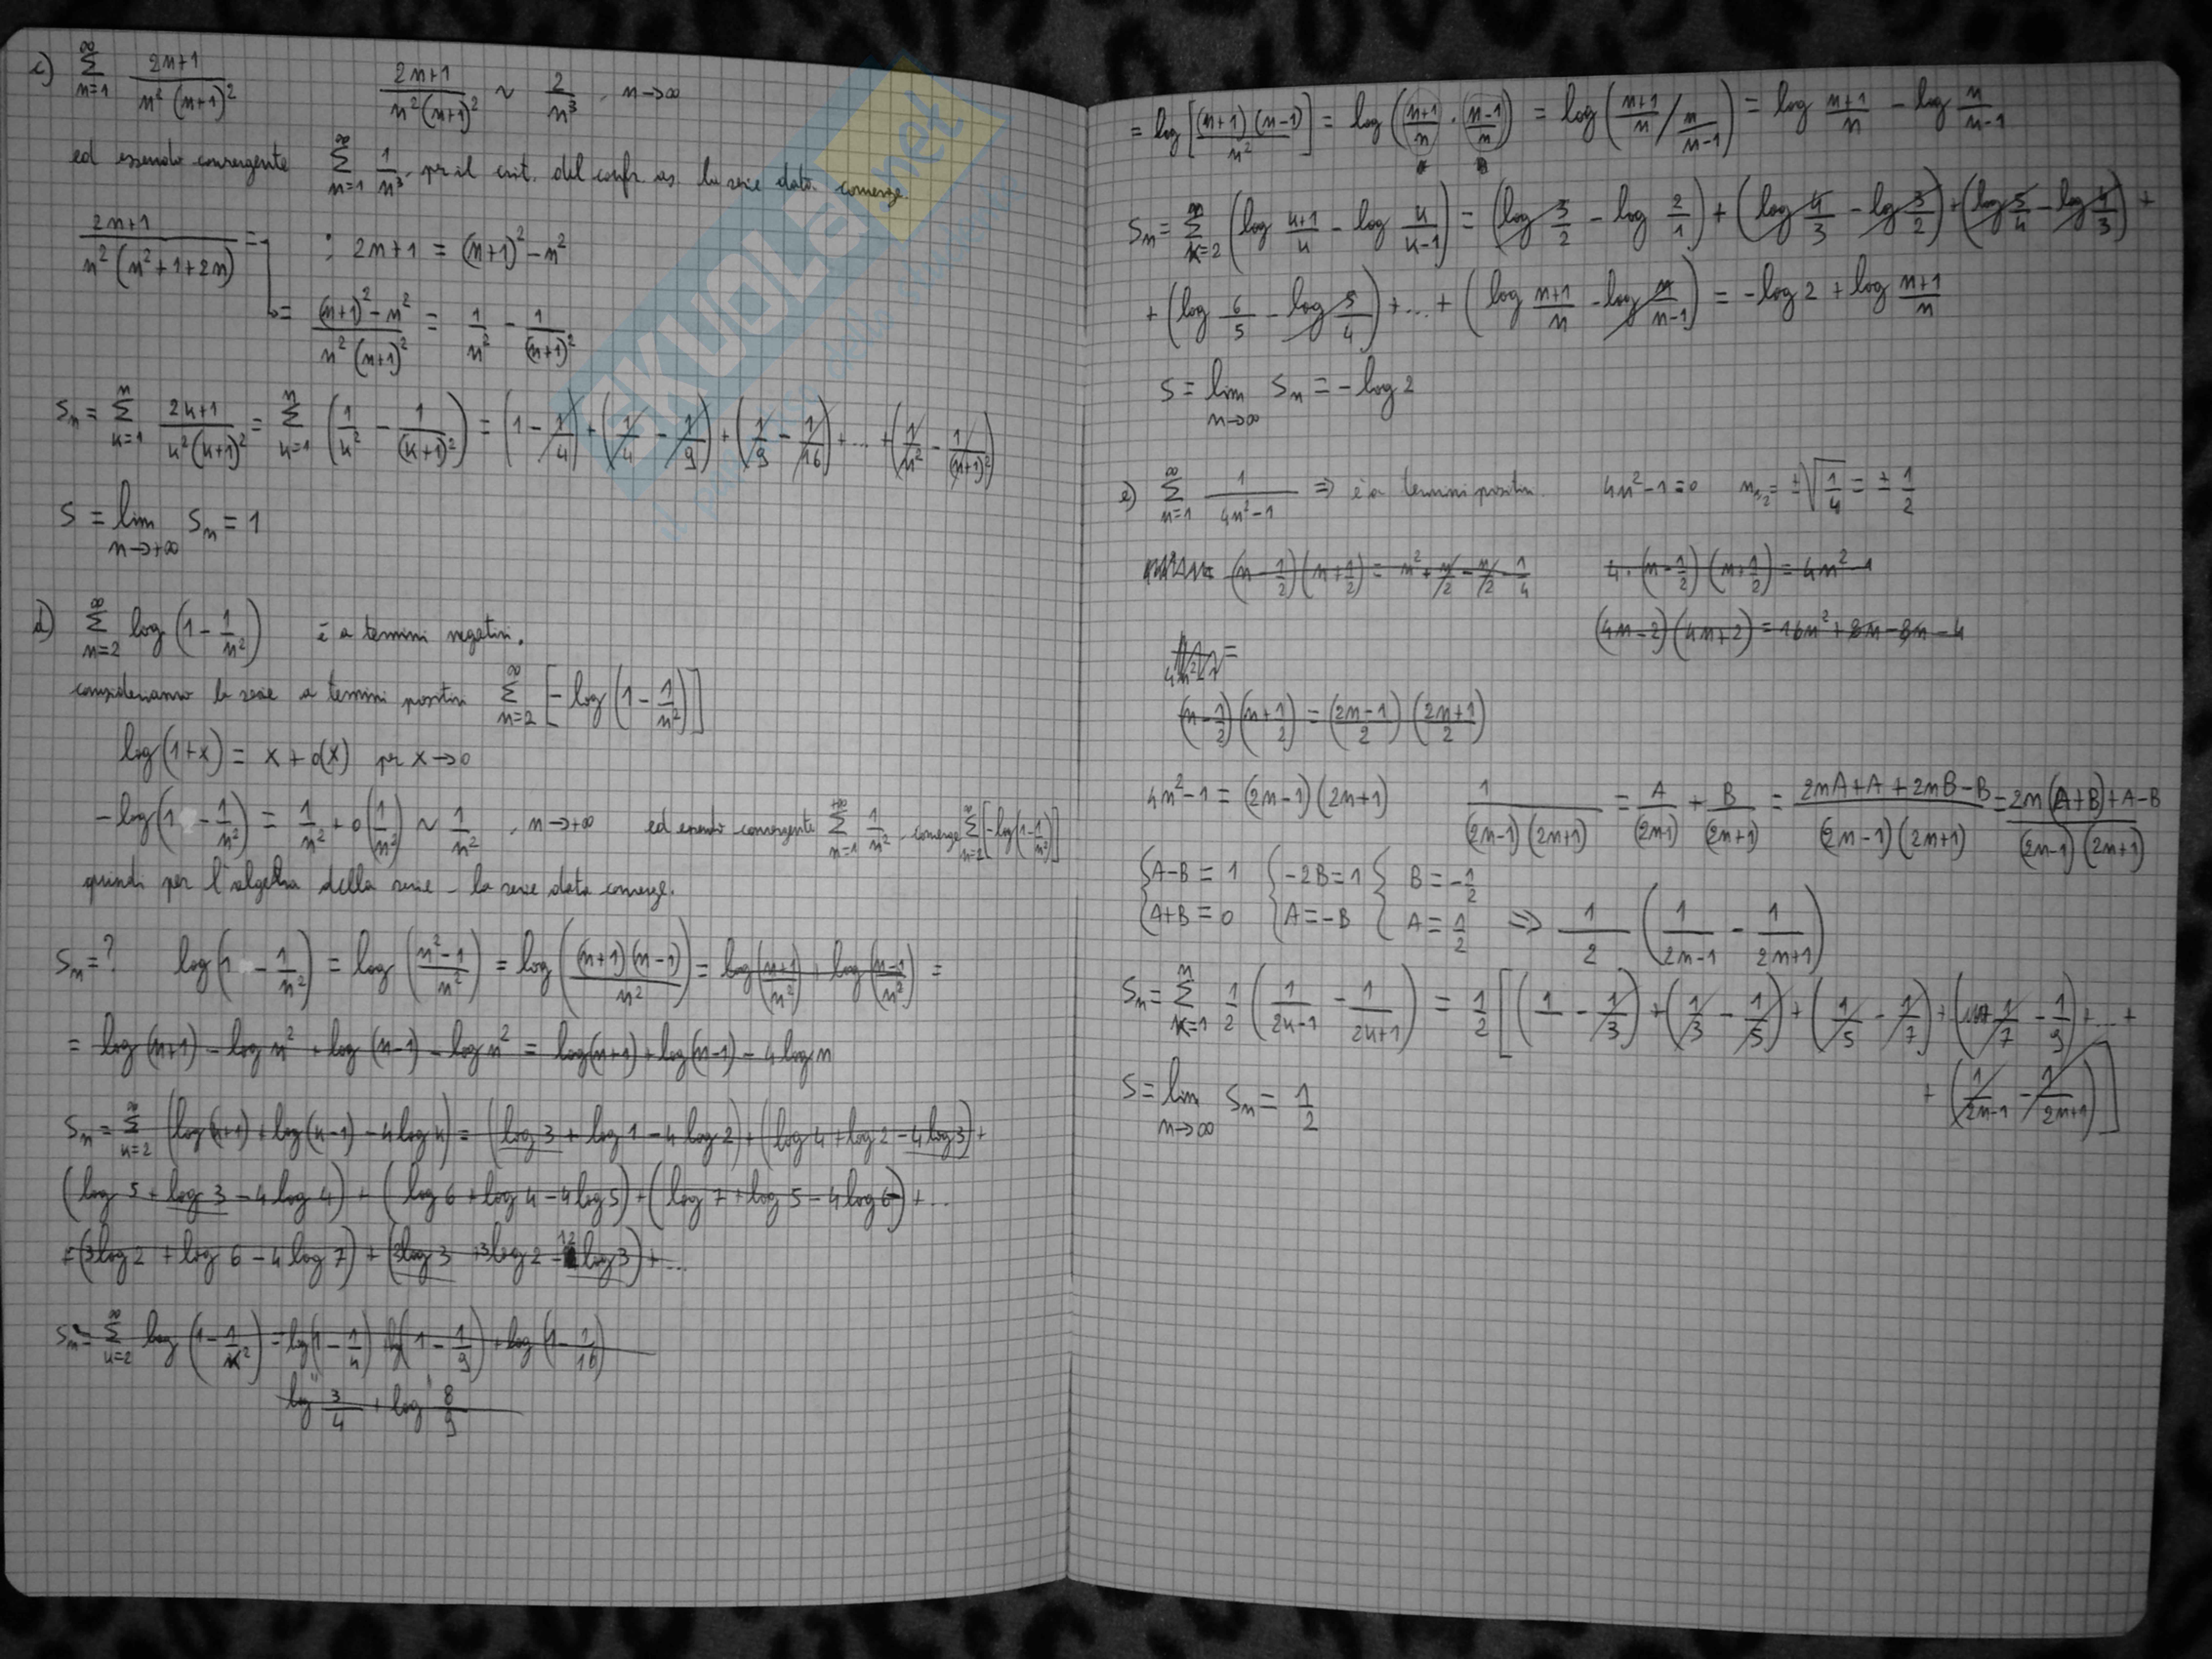 c) ∞∑n=1 (2n+1)/(n²(n+1)²)   (2n+1)/(n²(n+1)²) ~ 2/n³, n→∞
ed essendo convergente ∞∑n=1 1/n³, per il crit. del confr. as. la serie data converge.
(2n+1)/(n²(n²+1+2n)) = : 2n+1 = (n+1)²-n²
= ((n+1)²-n²)/(n²(n+1)²) = 1/n² - 1/(n+1)²
Sn = n∑k=1 (2k+1)/(k²(k+1)²) = n∑k=1 (1/k² - 1/(k+1)²) = (1 - 1/4) + (1/4 - 1/9) + (1/9 - 1/16) + ... + (1/n² - 1/(n+1)²)
S = lim n→+∞ Sn = 1
d) ∞∑n=2 log(1 - 1/n²) è a termini negativi.
consideriamo la serie a termini positivi ∞∑n=2 [-log(1 - 1/n²)]
log(1+x) = x + o(x) per x→0
-log(1 - 1/n²) = 1/n² + o(1/n²) ~ 1/n², n→+∞ ed essendo convergente +∞∑n=1 1/n², converge ∞∑n=2 [-log(1 - 1/n²)]
quindi per l'algebra della serie - la serie data converge.
Sn = ? log(1 - 1/n²) = log((n²-1)/n²) = log((n+1)(n-1)/n²) = log((n+1)/n²) + log((n-1)/n²) =
= log(n+1) - log n² + log(n-1) - log n² = log(n+1) + log(n-1) - 4 log n
Sn = ∞∑k=2 (log(k+1) + log(k-1) - 4 log k) = (log 3 + log 1 - 4 log 2) + (log 4 + log 2 - 4 log 3) +
(log 5 + log 3 - 4 log 4) + (log 6 + log 4 - 4 log 5) + (log 7 + log 5 - 4 log 6) + ...
+ (3 log 2 + log 6 - 4 log 7) + (2 log 3 + 3 log 2 - 12 log 3) + ...
Sn = ∞∑k=2 log(1 - 1/k²) = log(1 - 1/4) + log(1 - 1/9) + log(1 - 1/16)
log 3/4 + log 8/9
= log[(n+1)(n-1)/n²] = log((n+1)/n · (n-1)/n) = log((n+1)/n / n/(n-1)) = log (n+1)/n - log n/(n-1)
Sn = ∞∑k=2 (log (k+1)/k - log k/(k-1)) = (log 3/2 - log 2/1) + (log 4/3 - log 3/2) + (log 5/4 - log 4/3) +
+ (log 6/5 - log 5/4) + ... + (log (n+1)/n - log n/(n-1)) = -log 2 + log (n+1)/n
S = lim n→∞ Sn = -log 2
e) ∞∑n=1 1/(4n²-1) ⇒ è a termini positivi. 4n²-1=0 n1,2 = ±√(1/4) = ± 1/2
(n - 1/2)(n + 1/2) = n² + n/2 - n/2 - 1/4   4·(n - 1/2)(n + 1/2) = 4n²-1
(4n-2)(4n+2) = 16n² + 8n - 8n - 4
(n - 1/2)(n + 1/2) = ((2n-1)/2)((2n+1)/2)
4n²-1 = (2n-1)(2n+1)   1/((2n-1)(2n+1)) = A/(2n-1) + B/(2n+1) = (2nA+A+2nB-B)/((2n-1)(2n+1)) = (2n(A+B)+A-B)/((2n-1)(2n+1))
{A-B = 1 {-2B=1 { B = -1/2
{A+B = 0 {A=-B { A = 1/2 ⇒ 1/2 (1/(2n-1) - 1/(2n+1))
Sn = n∑k=1 1/2 (1/(2k-1) - 1/(2k+1)) = 1/2 [(1 - 1/3) + (1/3 - 1/5) + (1/5 - 1/7) + (1/7 - 1/9) + ... +
+ (1/(2n-1) - 1/(2n+1))]
S = lim n→∞ Sn = 1/2
SKUOLA.net